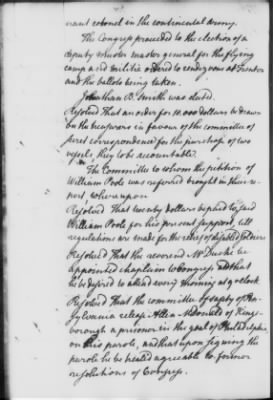 nant colonel in the continental Army.
The Congress proceeded to the election of a
deputy muster master general for the flying
camp and militia ordered to rendezvous at Trenton
and the ballots being taken.
Jonathan B. Smith was elected.
Resolved That an order for 10.000 dollars be drawn
on the treasurers in favour of the committee of
secret correspondence for the purchase of two
vessels, they to be accountable.
The Committee to whom the petition of
William Poole was referred brought in their re-
port, whereupon
Resolved That twenty dollars be paid to said
William Poole for his present support, till
regulations are made for the relief of disabled soldiers
Resolved That the reverend Mr Duché be
appointed chaplain to Congress and that
he be desired to attend every morning at 9 oClock
Resolved That the committee of safety of Pen-
sylvania release Allen McDonald of Kings-
borough a prisoner in the goal of Philadelphia
on his parole, and that upon signing the
parole he be treated agreeable to former
resolutions of Congress.